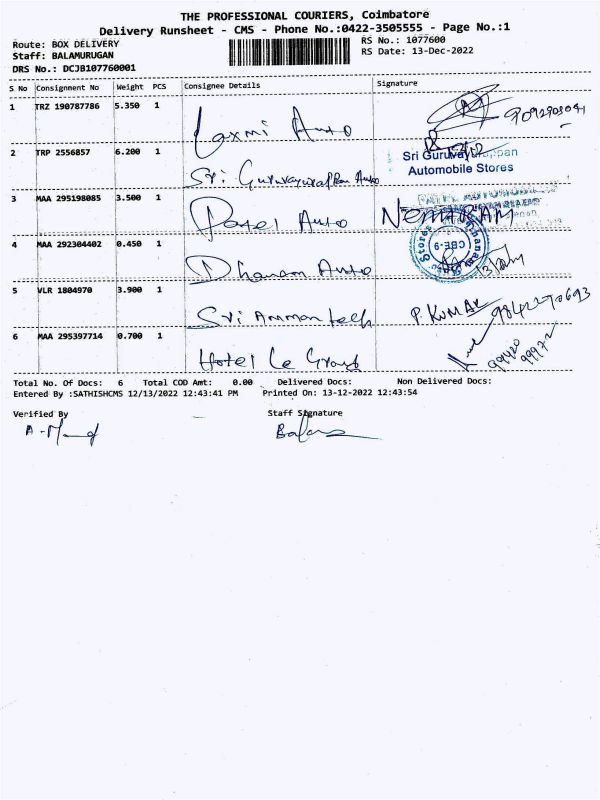 THE PROFESSIONAL COURIERS, Coimbatore
Delivery Runsheet - CMS - Phone No.:0422-3505555 - Page No.:1
Route: BOX DELIVERY
RS No.: 1077600
Staff: BALAMURUGAN
RS Date: 13-Dec-2022
DRS No.: DCJB107760001
S No Consignment No Weight PCS Consignee Details Signature
1 TRZ 190787786 5.350 1 Laxmi Auto
2 TRP 2556857 6.200 1 Sri Guruvayurappan Auto
Sri Guruvayurappan
Automobile Stores
3 MAA 295198085 3.500 1 Patel Auto NEMARAM
4 MAA 292304402 0.450 1 Dhanam Auto
CBE-9
5 VLR 1804970 3.900 1 Sri Amman tech P. KUMAR 9842270693
6 MAA 295397714 0.700 1 Hotel Le Grand
Total No. Of Docs: 6 Total COD Amt: 0.00 Delivered Docs: Non Delivered Docs:
Entered By :SATHISHCMS 12/13/2022 12:43:41 PM Printed On: 13-12-2022 12:43:54
Verified By Staff Signature